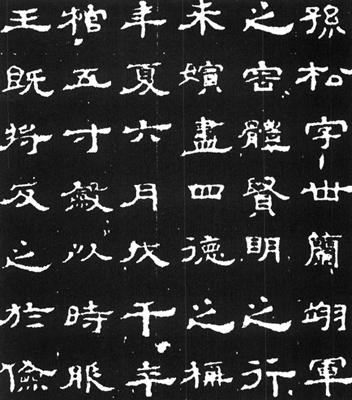 孫松字世蘭翊軍
之密體賢明之行
来嬪盡四德之稱
年夏六月戊午卒
棺五寸斂以時服
王既將反之於儉